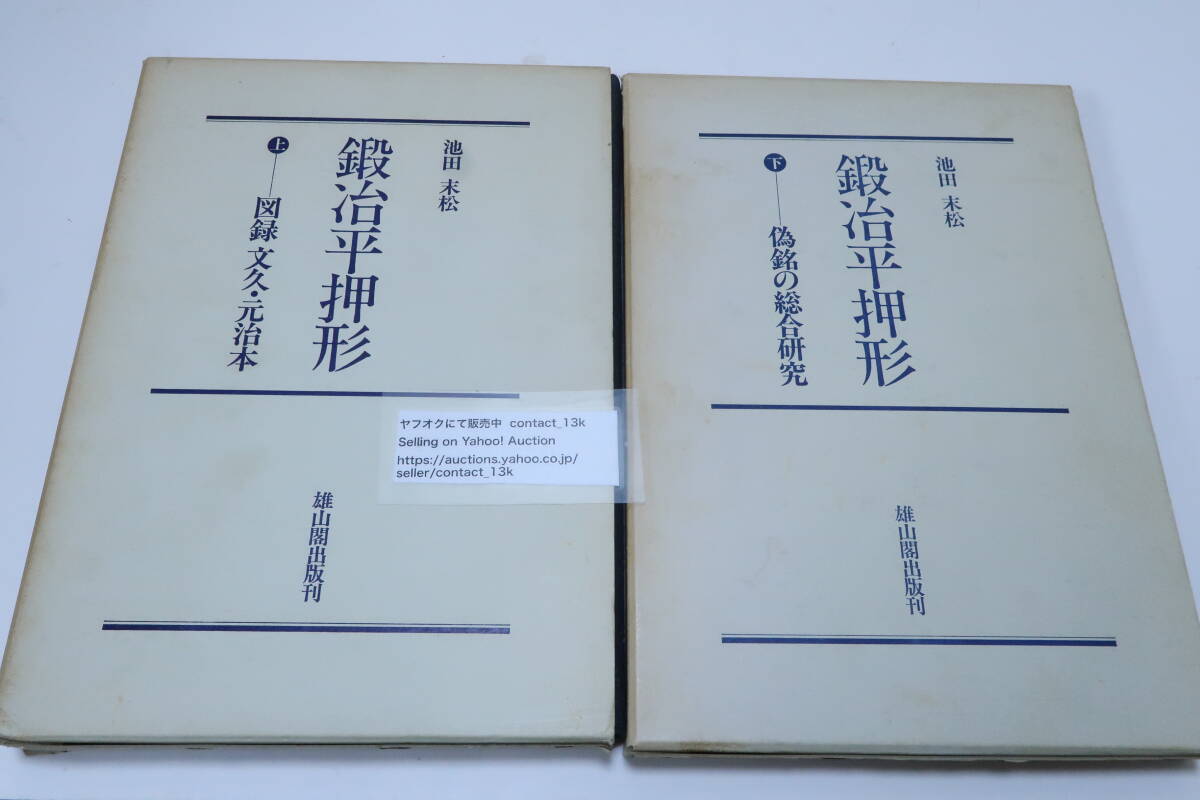 池田 末松
鍛冶平押形
上―図録 文久・元治本
雄山閣出版刊
池田 末松
鍛冶平押形
下―偽銘の総合研究
雄山閣出版刊
ヤフオクにて販売中 contact_13k
Selling on Yahoo! Auction
https://auctions.yahoo.co.jp/
seller/contact_13k